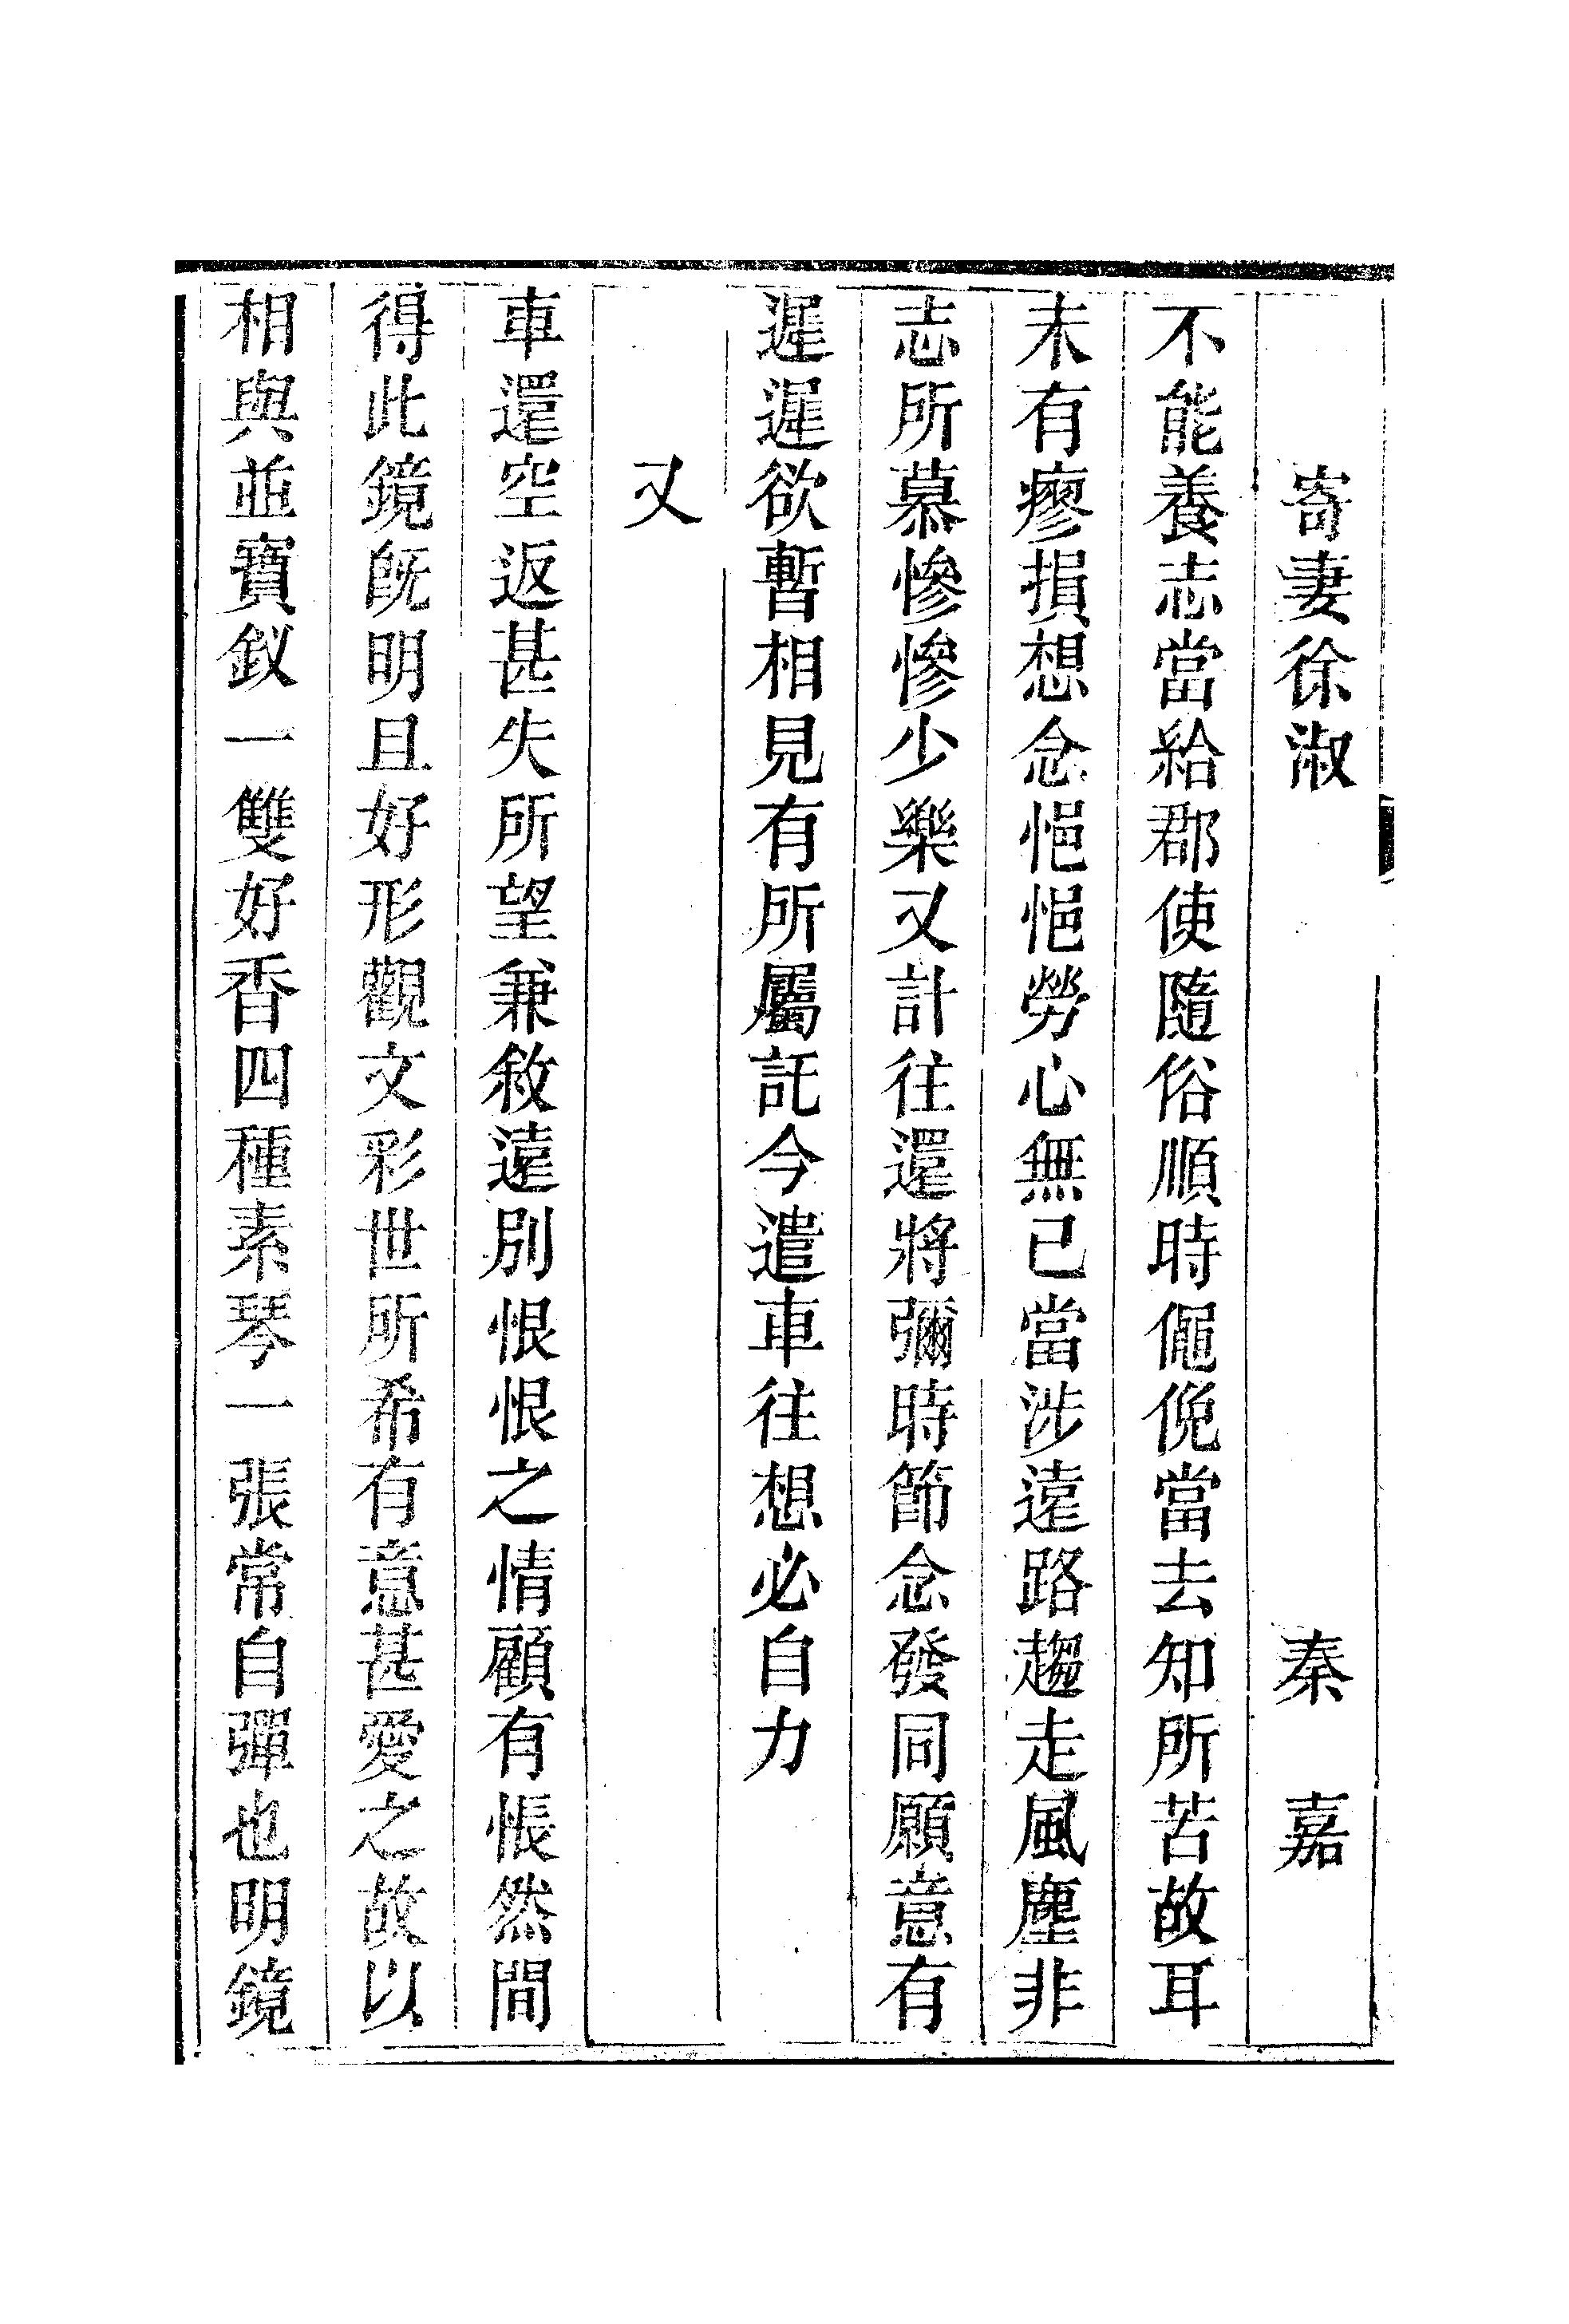 寄妻徐淑　秦嘉
不能養志當給郡使隨俗順時僶俛當去知所苦故耳
未有瘳損想念悒悒勞心無已當涉遠路趨走風塵非
志所慕慘慘少樂又計往還將彌時節念發同願意有
遲遲欲暫相見有所屬託今遣車往想必自力
又
車還空返甚失所望兼敘遠別恨恨之情顧有悵然間
得此鏡旣明且好形觀文彩世所希有意甚愛之故以
相與並寶釵一雙好香四種素琴一張常自彈也明鏡